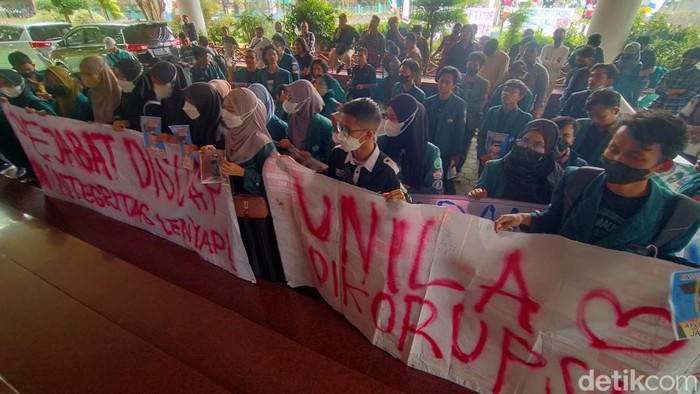 PEJABAT DISUAP
INTEGRITAS LENYAP!
UNILA
DIKORUPSI
detikcom